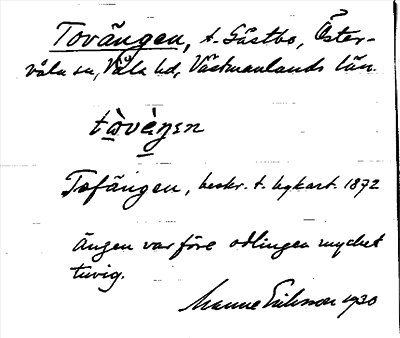 Tovängen, t. Gästbo, Öster-
våla sn, Våla hd, Västmanlands län.
tòvèŋen
Tofängen, beskr. t. lagakart. 1872
Ängen var före odlingen mycket
tuvig.
Manne Eriksson 1930